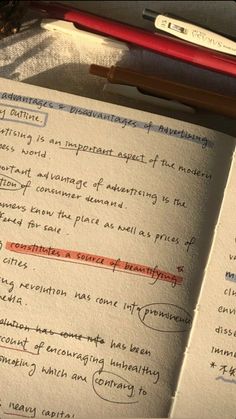 advantages & Disadvantages of Advertising
y Outline.
rtising is an important aspect of the modern
ess world.
ortant advantage of advertising is the
tion of consumer demand.
mers know the place as well as prices of
ered for sale.
constitutes a source of beautifying
cities.
ing revolution has come into prominence
media.
olution has come into has been
count of encouraging unhealthy
omoting which are contrary to
s heavy capital
env
disse
Imme